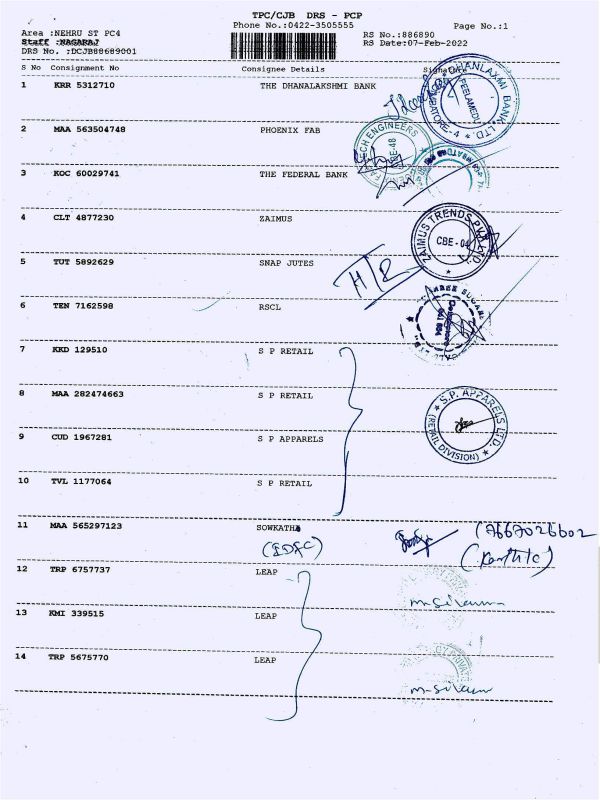 TPC/CJB DRS - PCP
Phone No.:0422-3505555
Page No.:1
Area :NEHRU ST PC4
Staff :NAGARAJ
DRS No. :DCJB88689001
RS No.:886890
RS Date:07-Feb-2022
S No Consignment No Consignee Details Signature
1 KRR 5312710 THE DHANALAKSHMI BANK
DHANLAXMI BANK LTD.
PEELAMEDU
2 MAA 563504748 PHOENIX FAB
ENGINEERS
3 KOC 60029741 THE FEDERAL BANK
4 CLT 4877230 ZAIMUS
ZAIMUS TRENDS PVT LTD
CBE - 04
5 TUT 5892629 SNAP JUTES
6 TEN 7162598 RSCL
7 KKD 129510 S P RETAIL
8 MAA 282474663 S P RETAIL
S.P. APPARELS LTD.
(RETAIL DIVISION)
9 CUD 1967281 S P APPARELS
10 TVL 1177064 S P RETAIL
11 MAA 565297123 SOWKATHA
(IDFC)
12 TRP 6757737 LEAP
13 KMI 339515 LEAP
14 TRP 5675770 LEAP